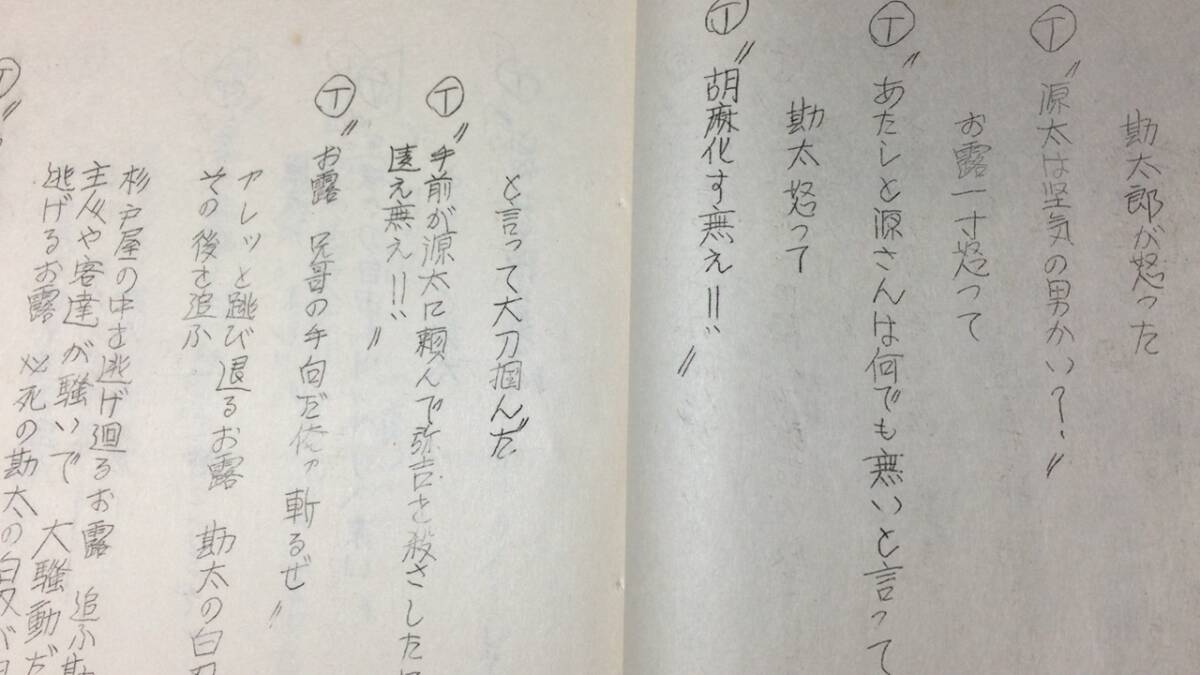 勘太郎が怒った
Ⓣ〝源太は坚気の男かい?〟
お露一寸怒って
Ⓣ〝あたしと源さんは何でも無いと言って
勘太怒って
Ⓣ〝胡麻化す無え!!〟
と言って大刀掴んだ
Ⓣ〝手前が源太に頼んで弥吉を殺さした
違え無え!!〟
Ⓣ〝お露 兄哥の手向だ俺ァ斬るぜ〟
アレッと跳び退るお露 勘太の白刃
その後を追ふ
杉戸屋の中を逃げ廻るお露 追ふ勘
主人や客達が騒いで 大騒動だ
逃げるお露 必死の勘太の白刃が
Ⓣ〝